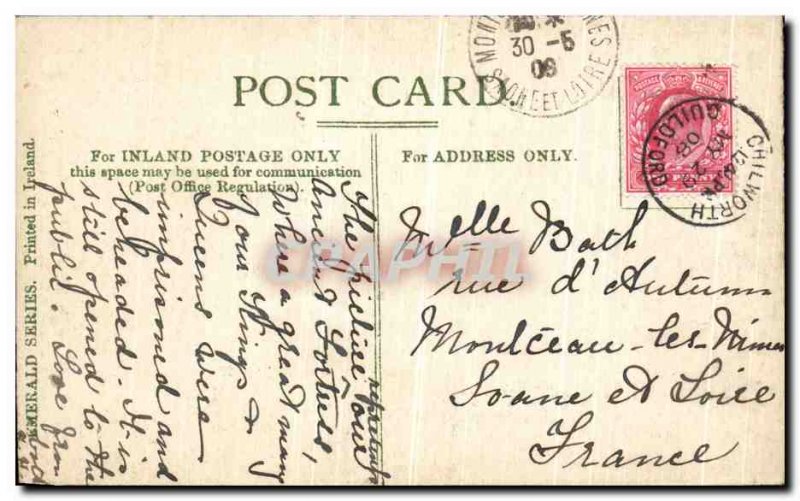 POST CARD.
For INLAND POSTAGE ONLY
this space may be used for communication
(Post Office Regulation).
For ADDRESS ONLY.
EMERALD SERIES. Printed in Ireland.
The picture
represents
our
Ancient
Where a great many
your Kings &
Queens were
imprisoned and
beheaded. It is
still opened to the
public. Love from
Melle Bath
rue d'Autun
Montceau-les-Mines
Soane et Loire
France
30 -5
08
SAONE ET LOIRE
CHILWORTH
GUILDFORD
MY 29
08
POSTAGE
PENNY
CPAPHIL